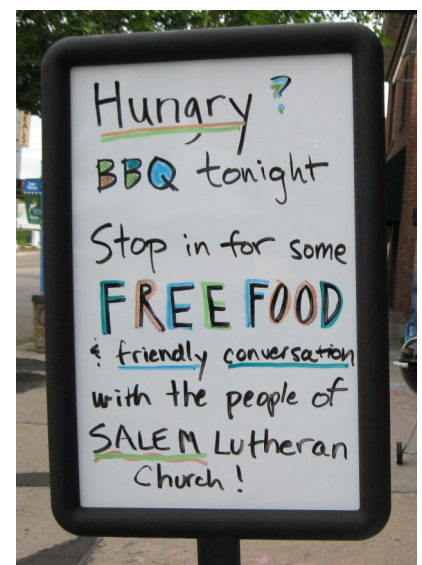 Hungry?
BBQ tonight
Stop in for some
FREE FOOD
& friendly conversation
with the people of
SALEM Lutheran
Church!